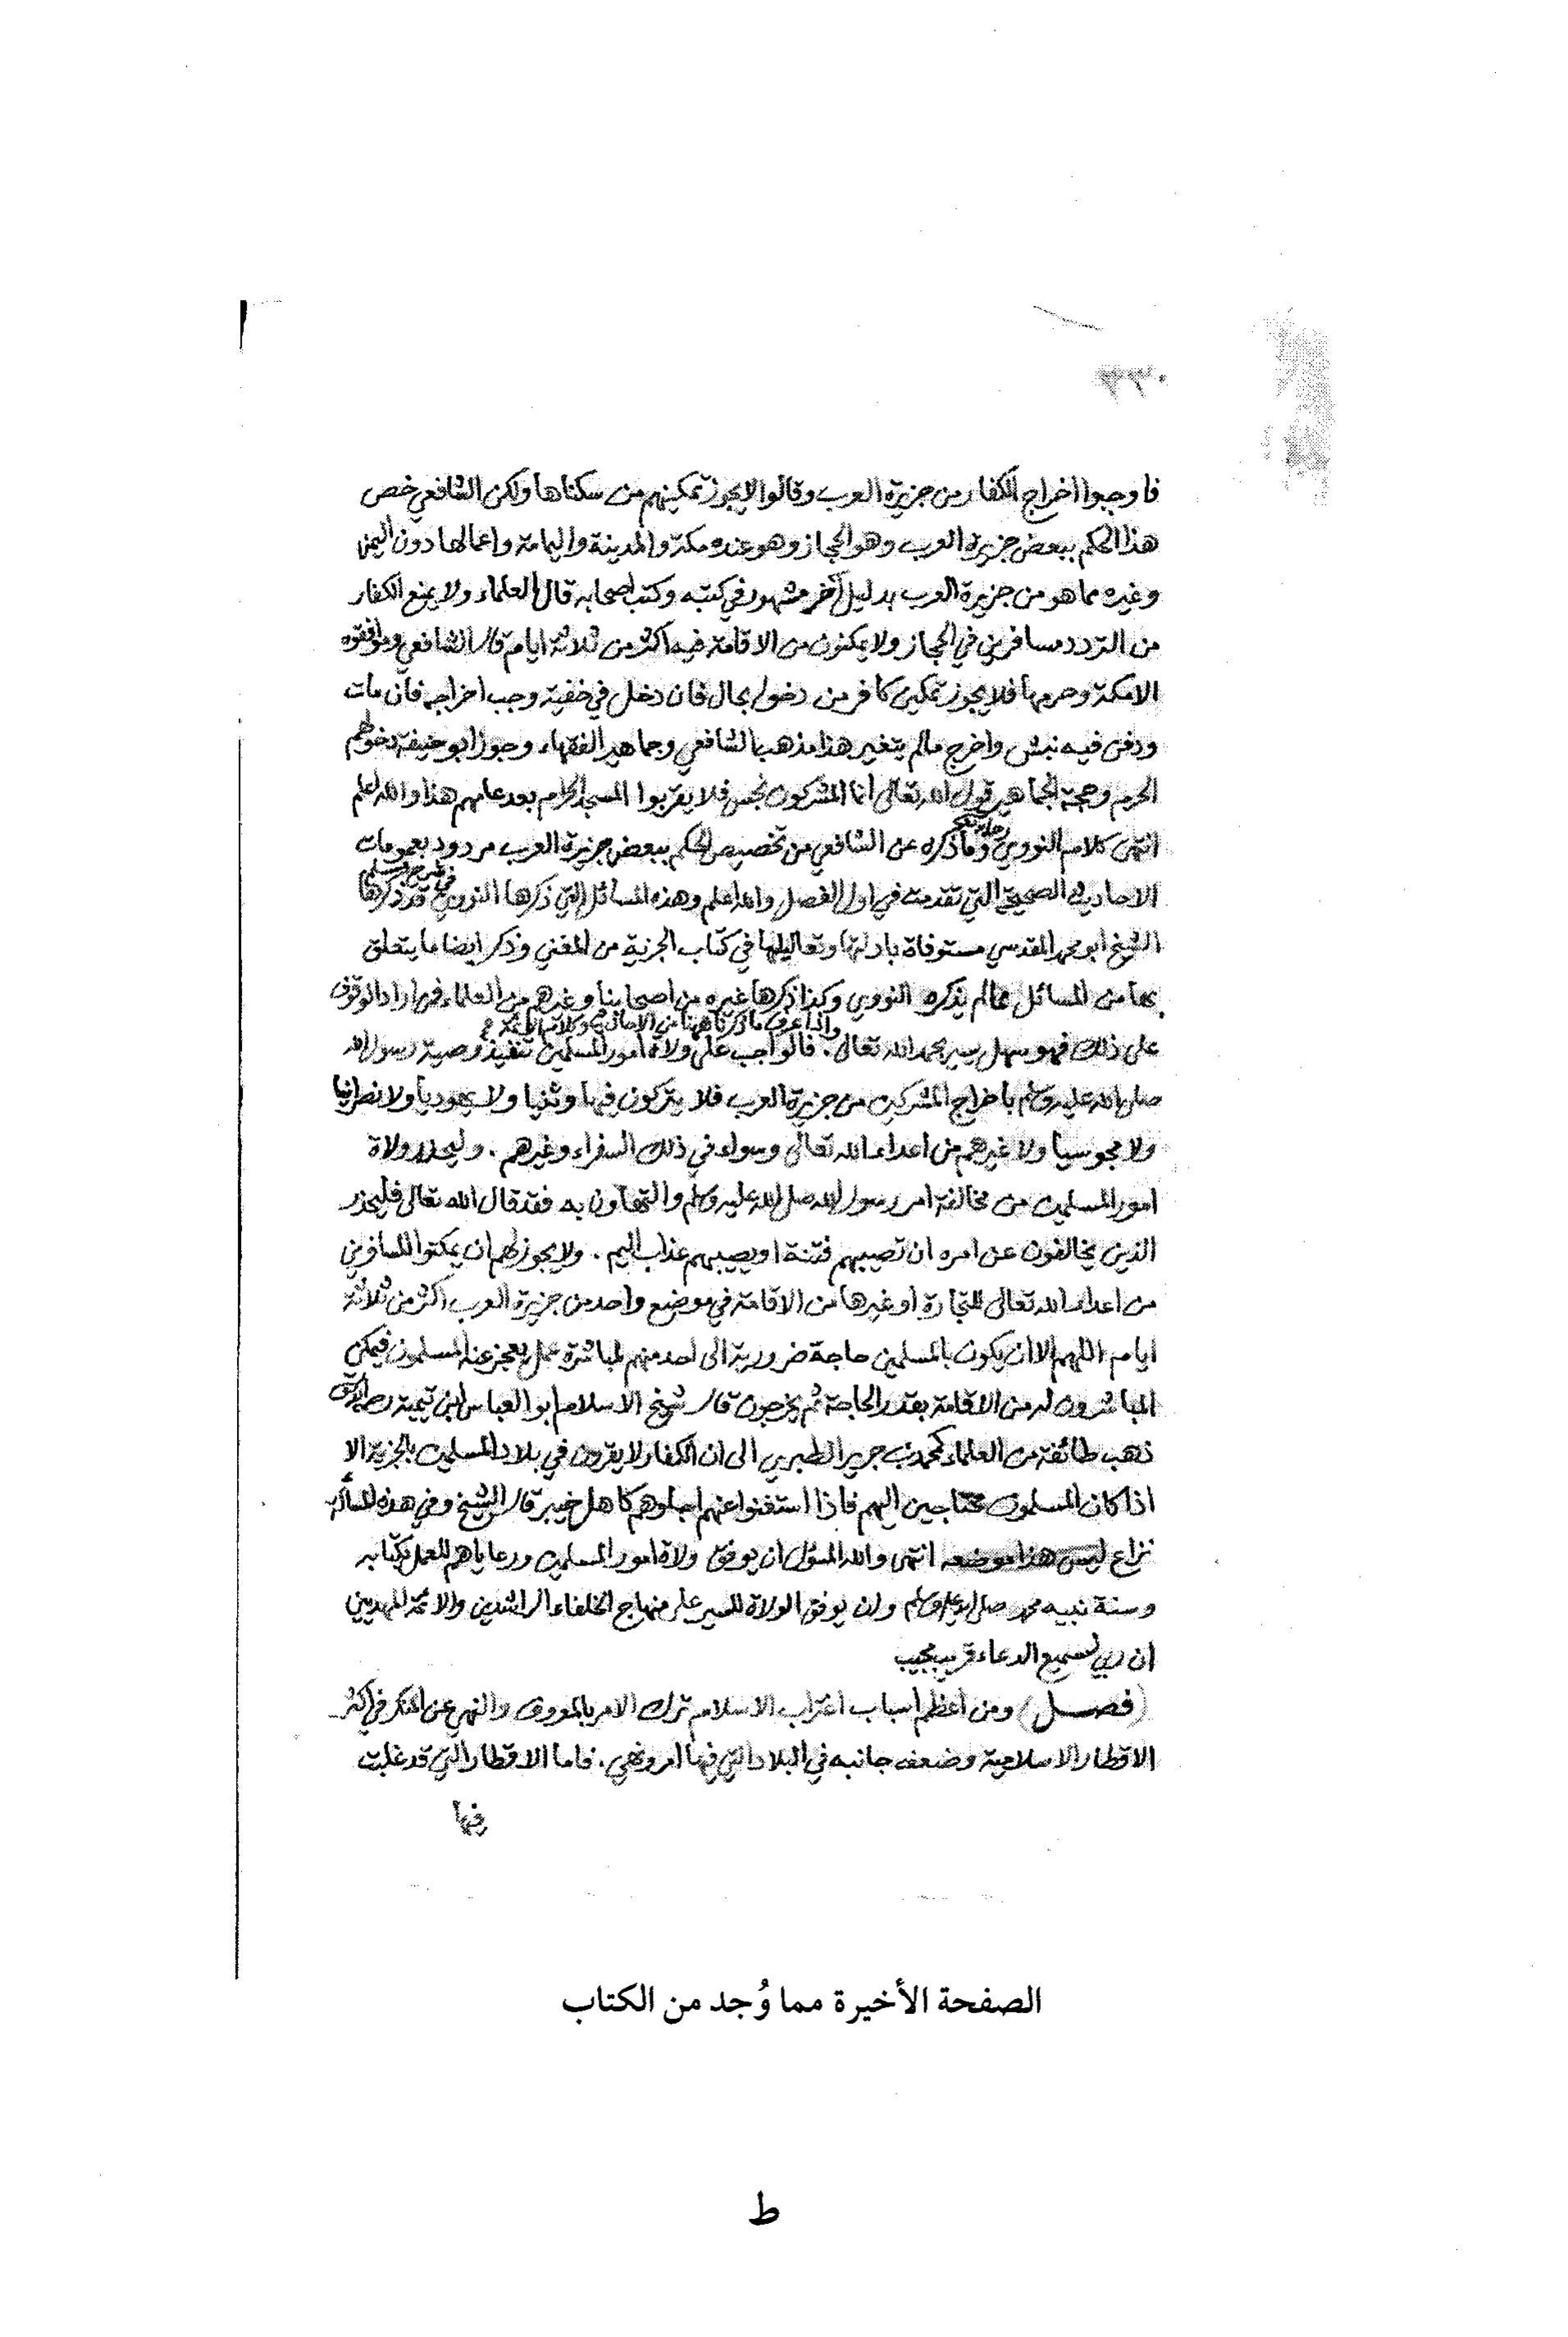 فاوجبوا اخراج الكفار من جزيرة العرب وقالوا لا يجوز تمكينهم من سكناها ولكن الشافعي خص
هذا الحكم ببعض جزيرة العرب وهو الحجاز وهو عنده مكة والمدينة واليمامة واعمالها دون اليمن
وغيره مما هو من جزيرة العرب بدليل آخر مشهور في كتبه وكتب اصحابه قال العلماء ولا يمنع الكفار
من التردد مسافرين في الحجاز ولا يمكنون من الاقامة فيه اكثر من ثلاثة ايام قال الشافعي وموافقوه
الا مكة وحرمها فلا يجوز تمكين كافر من دخوله بحال فان دخل في خفية وجب اخراجه فان مات
ودفن فيه نبش واخرج مالم يتغير هذا مذهب الشافعي وجماهير الفقهاء وجوز ابو حنيفة دخولهم
الحرم وحجة الجماهير قول الله تعالى انما المشركون نجس فلا يقربوا المسجد الحرام بعد عامهم هذا والله اعلم
انتهى كلام النووي وما ذكره عن الشافعي من تخصيص الحكم ببعض جزيرة العرب مردود بعمومات
في شرح مسلم
الاحاديث الصحيحة التي تقدمت في اول الفصل والله اعلم وهذه المسائل التي ذكرها النووي قد ذكرها
الشيخ ابو محمد المقدسي مستوفاة بادلتها وتعاليلها في كتاب الجزية من المغني وذكر ايضا ما يتعلق
بها من المسائل مما لم يذكره النووي وكذا ذكرها غيره من اصحابنا وغيرهم من العلماء فمن اراد الوقوف
واذا عرف ما ذكرنا ههنا من الاحاديث وكلام الائمة
على ذلك فهو سهل يسير بحمد الله تعالى. فالواجب على ولاة امور المسلمين تنفيذ وصية رسول الله
صلى الله عليه وسلم باخراج المشركين من جزيرة العرب فلا يتركون فيها وثنيا ولا يهوديا ولا نصرانيا
ولا مجوسيا ولا غيرهم من اعداء الله تعالى وسواء في ذلك السفراء وغيرهم. وليحذر ولاة
امور المسلمين من مخالفة امر رسول الله صلى الله عليه وسلم والتهاون به فقد قال الله تعالى فليحذر
الذين يخالفون عن امره ان تصيبهم فتنة او يصيبهم عذاب اليم. ولا يجوز لهم ان يمكنوا المسافرين
من اعداء الله تعالى للتجارة او غيرها من الاقامة في موضع واحد من جزيرة العرب اكثر من ثلاثة
ايام اللهم الا ان يكون بالمسلمين حاجة ضرورية الى احد منهم لمباشرة عمل يعجز عنه المسلمون فيمكن
المباشرون له من الاقامة بقدر الحاجة ثم يخرجون قال شيخ الاسلام ابو العباس ابن تيمية
ذهب طائفة من العلماء كمحمد بن جرير الطبري الى ان الكفار لا يقرون في بلاد المسلمين بالجزية الا
اذا كان المسلمون محتاجين اليهم فاذا استغنوا عنهم اجلوهم كاهل خيبر قال الشيخ وفي هذه المسألة
نزاع ليس هذا موضعه انتهى والله المسؤل ان يوفق ولاة امور المسلمين ورعاياهم للعمل بكتابه
وسنة نبيه محمد صلى الله عليه وسلم وان يوفق الولاة للسير على منهاج الخلفاء الراشدين والائمة المهديين
ان ربي لسميع الدعاء قريب مجيب
(فصل) ومن أعظم اسباب اغتراب الاسلام ترك الامر بالمعروف والنهي عن المنكر في اكثر
الاقطار الاسلامية وضعف جانبه في البلاد التي فيها امر ونهي. فاما الاقطار التي قد غلبت
فيها
الصفحة الأخيرة مما وُجد من الكتاب
ط